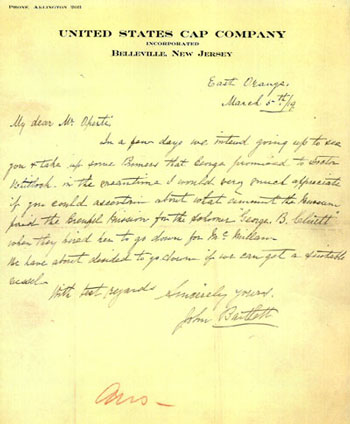 PHONE, ARLINGTON 2611
UNITED STATES CAP COMPANY
INCORPORATED
BELLEVILLE, NEW JERSEY
East Orange,
March 5th/19
My dear Mr Operti:
In a few days we intend going up to see
you & take up some that promised to
in the meantime I would very much appreciate
if you could ascertain about what amount the Museum
paid the Grenfel Mission for the "George B. Cluett"
when they hired her to go down for McMillan
We have about decided to go down if we can get a suitable
vessel.
With best regards
Sincerely yours,
John Bartlett
Ans-